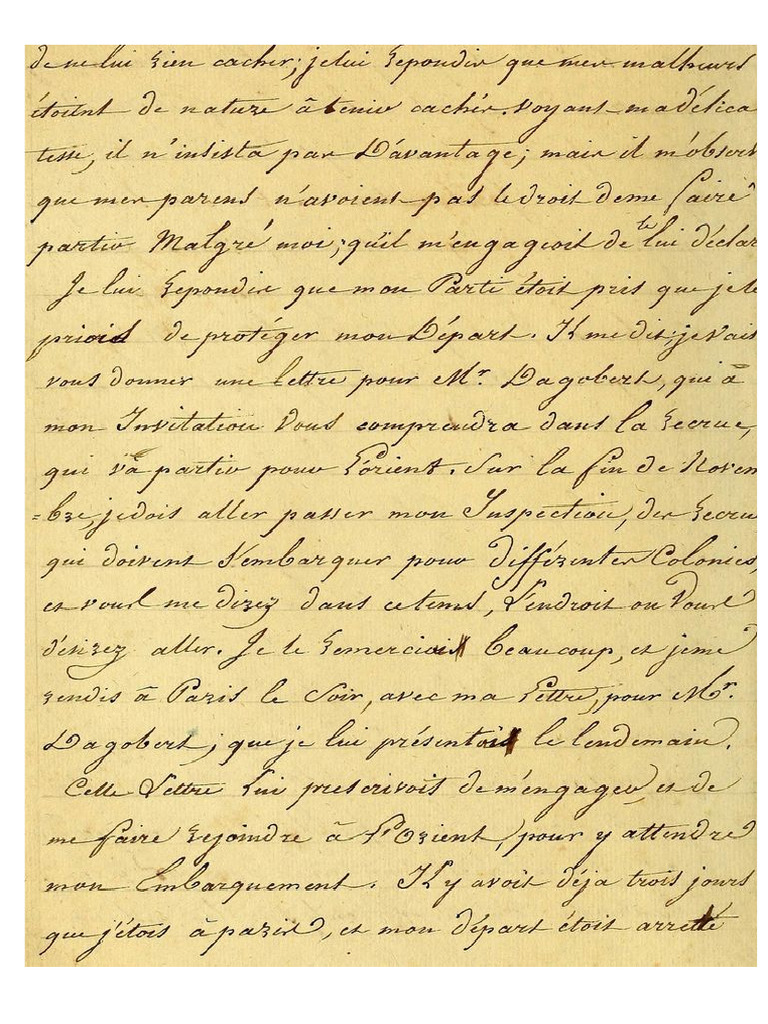 de ne lui rien cacher; je lui repondis que mes malheurs
étoient de nature à tenir cachés. voyant ma délica
tesse, il n'insista pas D'avantage; mais il m'observ
que mes parens n'avoient pas le droit de me faire
partir Malgré moi; qu'il m'engageoit de te lui déclar
Je lui repondis que mon Parti étoit pris que je le
priois de protéger mon Départ. Il me dit; je vais
vous donner une lettre pour Mr. Dagobert, qui à
mon Invitation Vous comprendra dans la recrue,
qui va partir pour L'orient. Sur la fin de Novem
=bre, je dois aller passer mon Inspection, des recru
qui doivent S'embarquer pour différentes Colonies,
et vous me direz dans ce tems, L'endroit ou Vous
désirez aller. Je le remerciai beaucoup, et je me
rendis à Paris le Soir, avec ma Lettre, pour Mr.
Dagobert; que je lui présentois le lendemain.
Cette Lettre Lui prescrivoit de m'engager, et de
me faire rejoindre à L'Orient, pour y attendre
mon Embarquement. Il y avoit déja trois jours
que j'étois à paris, et mon départ étoit arretté